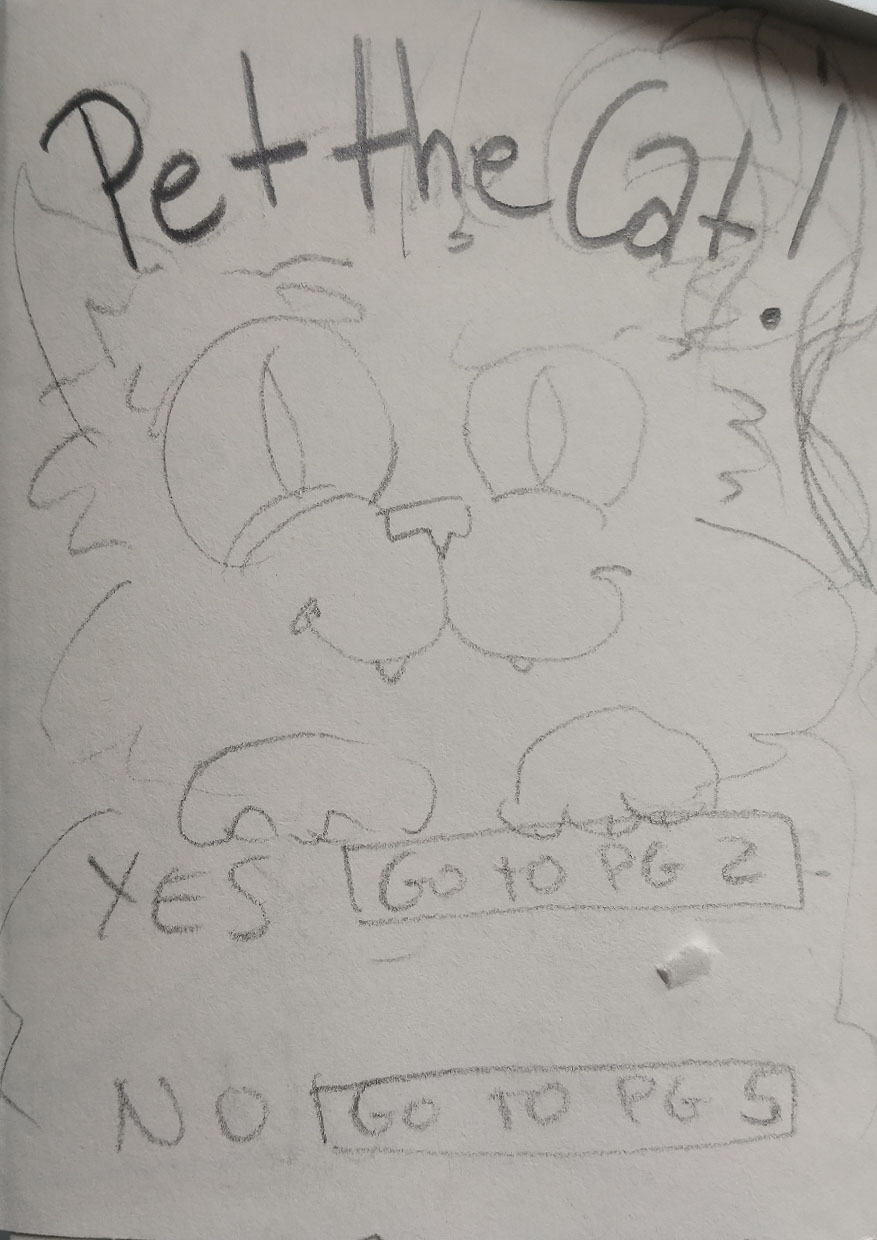 Pet the Cat!
YES GO TO PG 2
NO GO TO PG 5